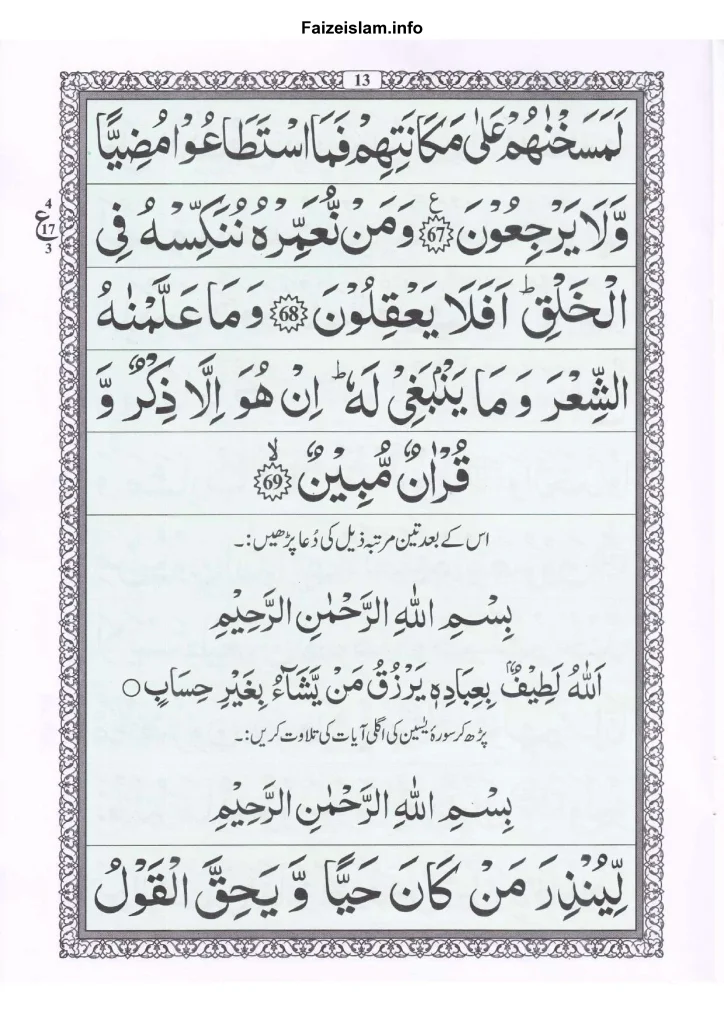 Faizeislam.info
13
لَمَسَخْنٰهُمْ عَلٰى مَكَانَتِهِمْ فَمَا اسْتَطَاعُوْا مُضِيًّا
وَّلَا يَرْجِعُوْنَ ۧ67 وَمَنْ نُّعَمِّرْهُ نُنَكِّسْهُ فِي
4
ع
17
3
الْخَلْقِ ؕ اَفَلَا يَعْقِلُوْنَ 68 وَمَا عَلَّمْنٰهُ
الشِّعْرَ وَمَا يَنْۢبَغِيْ لَهٗ ؕ اِنْ هُوَ اِلَّا ذِكْرٌ وَّ
قُرْاٰنٌ مُّبِيْنٌ ۙ69
اس کے بعد تین مرتبہ ذیل کی دُعا پڑھیں:۔
بِسْمِ اللّٰهِ الرَّحْمٰنِ الرَّحِيْمِ
اَللّٰهُ لَطِيْفٌۢ بِعِبَادِهٖ يَرْزُقُ مَنْ يَّشَآءُ بِغَيْرِ حِسَابٍ ○
پڑھ کر سورۂ یٰسین کی اگلی آیات کی تلاوت کریں:۔
بِسْمِ اللّٰهِ الرَّحْمٰنِ الرَّحِيْمِ
لِّيُنْذِرَ مَنْ كَانَ حَيًّا وَّيَحِقَّ الْقَوْلُ